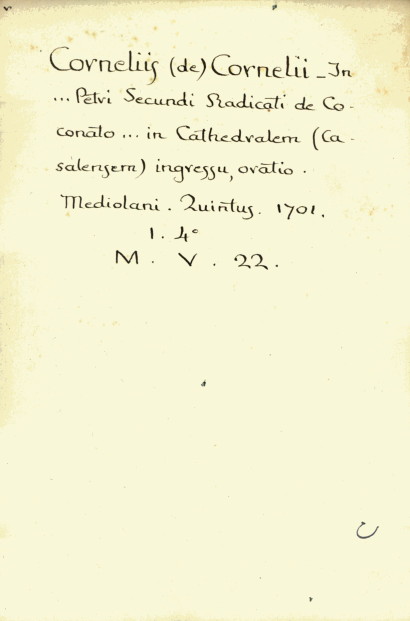 Corneliis (de) Cornelii - In
... Petri Secundi Radicati de Co-
conato ... in Cathedralem (Ca-
salensem) ingressu, oratio.
Mediolani. Quintus. 1701.
1. 4°
M. V. 22.